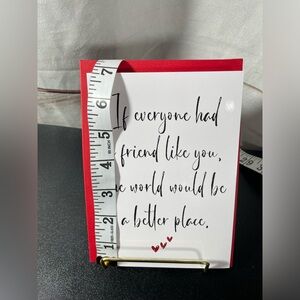 If everyone had
friend like you,
world would be
a better place.
7
6
5
4
3
2
1